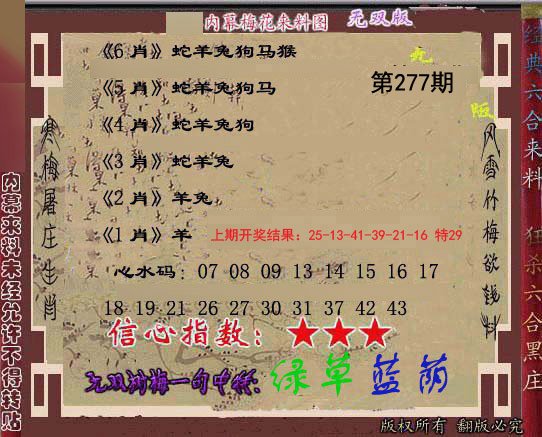 内幕梅花来料图 无双版
《6 肖》蛇羊兔狗马猴
《5 肖》蛇羊兔狗马
第277期
《4 肖》蛇羊兔狗
《3 肖》蛇羊兔
《2 肖》羊兔
《1 肖》羊 上期开奖结果：25-13-41-39-21-16 特29
心水码：07 08 09 13 14 15 16 17
18 19 21 26 27 30 31 37 42 43
信心指数：★★★
无双 梅一句中特：绿草蓝荫
版权所有 翻版必究
寒梅屠庄生肖
风雪竹梅欲钱料
内幕来料未经允许不得转贴
经典六合来料
狂杀六合黑庄